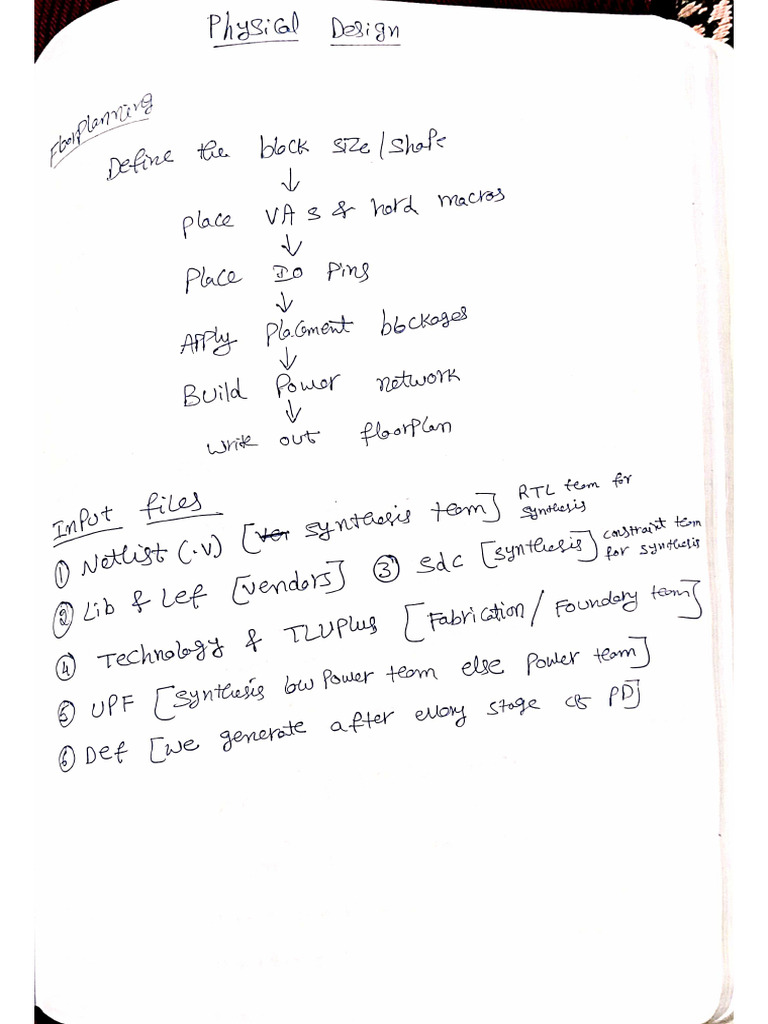 Physical Design
Floorplanning
Define the block size/shape
↓
place VA s & hard macros
↓
Place IO Pins
↓
Apply Placement blockages
↓
Build Power network
↓
write out floorplan
Input files
① Netlist (.v) [ver synthesis team] RTL team for synthesis
② Lib & Lef [vendors] ③ sdc [synthesis] constraint team for synthesis
④ Technology & TLUPlus [Fabrication / Foundary team]
⑤ UPF [synthesis low power team else power team]
⑥ Def [we generate after every stage of PD]